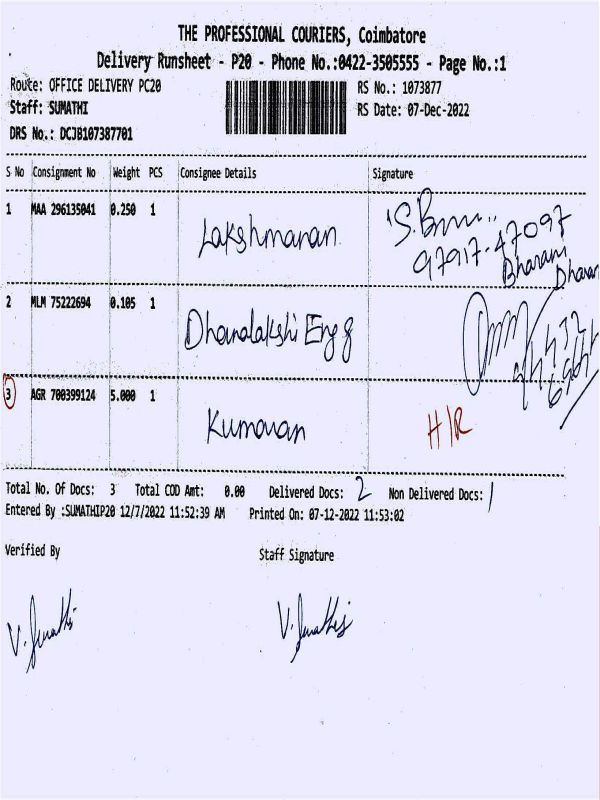 THE PROFESSIONAL COURIERS, Coimbatore
Delivery Runsheet - P20 - Phone No.:0422-3505555 - Page No.:1
Route: OFFICE DELIVERY PC20 RS No.: 1073877
Staff: SUMATHI RS Date: 07-Dec-2022
DRS No.: DCJB107387701
S No Consignment No Weight PCS Consignee Details Signature
1 MAA 296135041 0.250 1 Lakshmanan
97917-47097
Bharani
Dharan
2 MLM 75222694 0.105 1 Dhanalakshi Engg
3 AGR 700399124 5.000 1 Kumaran H/R
Total No. Of Docs: 3 Total COD Amt: 0.00 Delivered Docs: 2 Non Delivered Docs: 1
Entered By :SUMATHIP20 12/7/2022 11:52:39 AM Printed On: 07-12-2022 11:53:02
Verified By Staff Signature